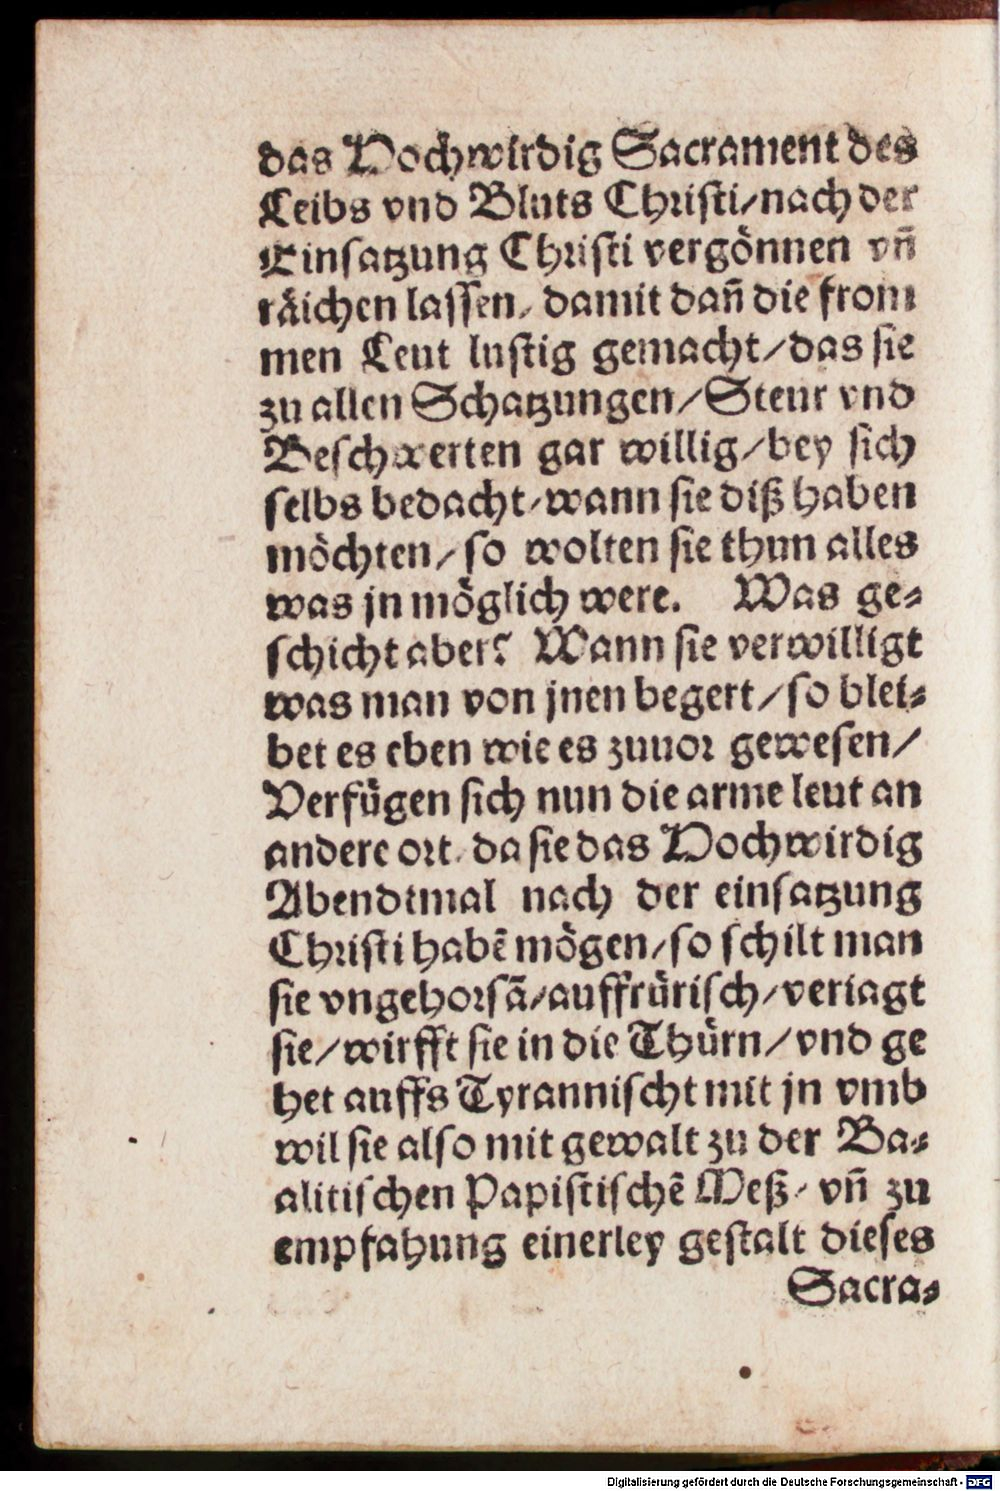 das Hochwirdig Sacrament des
Leibs vnd Bluts Christi/nach der
Einsatzung Christi vergönnen vñ
räichen lassen/ damit dañ die from
men Leut lustig gemacht/das sie
zu allen Schatzungen/Steur vnd
Beschwerten gar willig/bey sich
selbs bedacht/wann sie diß haben
möchten/so wolten sie thun alles
was jn möglich were. Was ge-
schicht aber? Wann sie verwilligt
was man von jnen begert/so blei-
bet es eben wie es zuuor gewesen/
Verfügen sich nun die arme leut an
andere ort/da sie das Hochwirdig
Abendtmal nach der einsatzung
Christi habẽ mögen/so schilt man
sie vngehorsã/auffrürisch/veriagt
sie/wirfft sie in die Thürn/vnd ge
het auffs Tyrannischt mit jn vmb
wil sie also mit gewalt zu der Ba-
alitischen Papistischẽ Meß/ vñ zu
empfahung einerley gestalt dieses
Sacra-
Digitalisierung gefördert durch die Deutsche Forschungsgemeinschaft - DFG